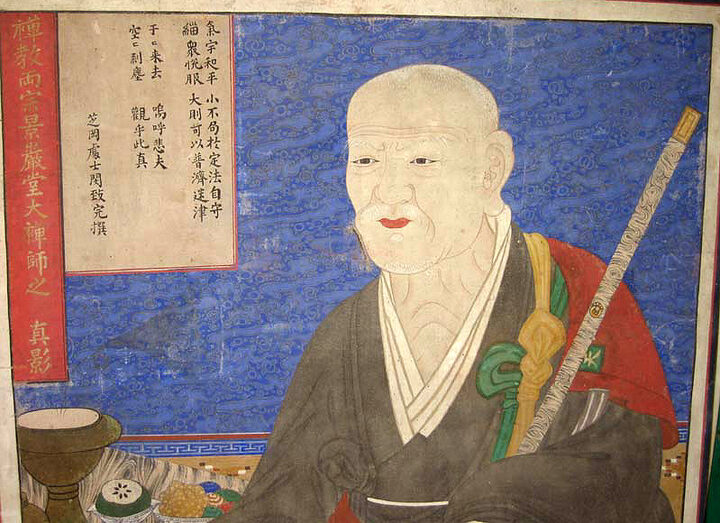 氣宇和平 小不局於定法自守
緇衆悅服 大則可以普濟迷津
于〻来去 嗚呼悲夫
空〻刹塵 觀乎此真
芝岡處士閔致完撰
禪教兩宗景巖堂大禪師之 真影